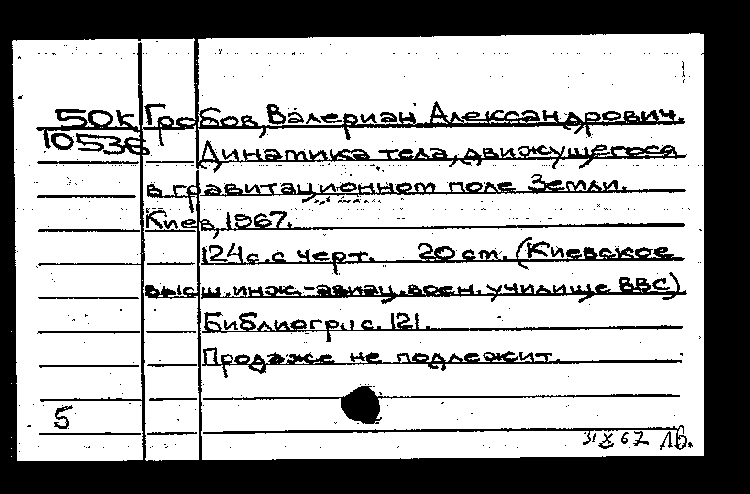 50К Гробов, Валериан Александрович.
10536 Динамика тела, движущегося
в гравитационном поле Земли.
Киев, 1967.
124 с. с черт. 20 см. (Киевское
высш. инж.-авиац. воен. училище ВВС)
Библиогр.: с. 121.
Продаже не подлежит.
5
31 X 67 Лв.